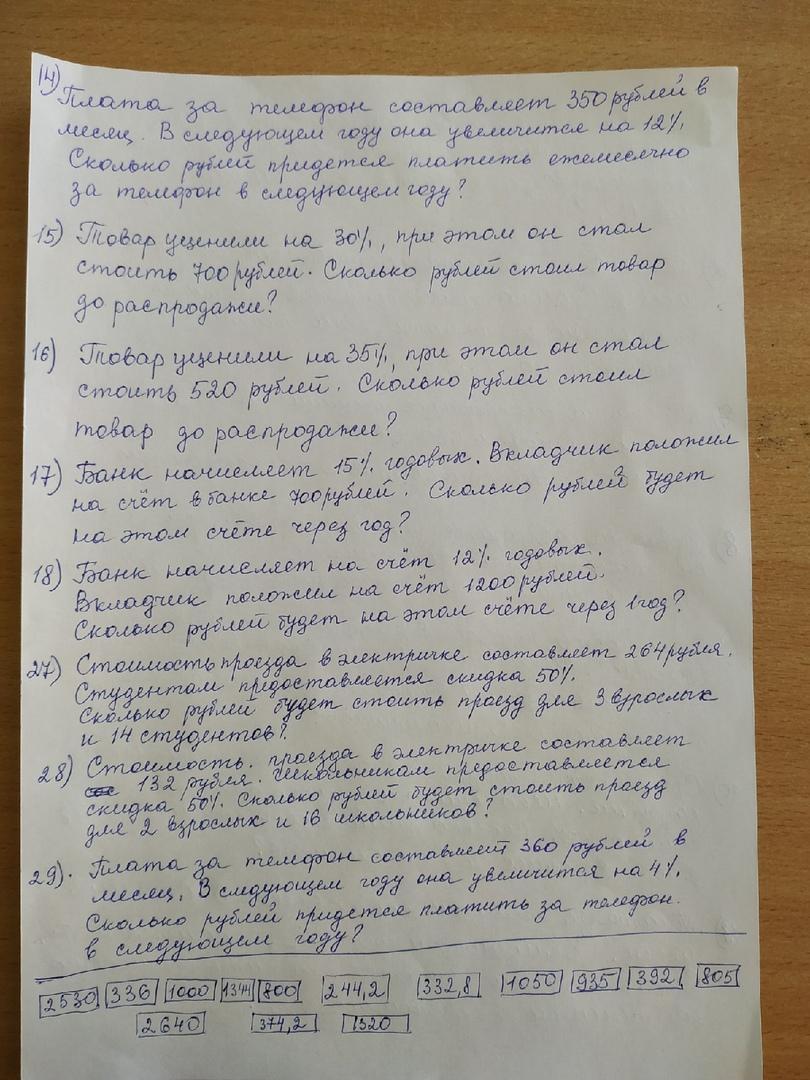 14) Плата за телефон составляет 350 рублей в
месяц. В следующем году она увеличится на 12%.
Сколько рублей придется платить ежемесячно
за телефон в следующем году?
15) Товар уценили на 30%, при этом он стал
стоить 700 рублей. Сколько рублей стоил товар
до распродажи?
16) Товар уценили на 35%, при этом он стал
стоить 520 рублей. Сколько рублей стоил
товар до распродажи?
17) Банк начисляет 15% годовых. Вкладчик положил
на счёт в банке 700 рублей. Сколько рублей будет
на этом счёте через год?
18) Банк начисляет на счёт 12% годовых.
Вкладчик положил на счёт 1200 рублей.
Сколько рублей будет на этом счёте через 1 год?
27) Стоимость проезда в электричке составляет 264 рубля.
Студентам предоставляется скидка 50%.
Сколько рублей будет стоить проезд для 3 взрослых
и 14 студентов?
28) Стоимость проезда в электричке составляет
132 рубля. Школьникам предоставляется
скидка 50%. Сколько рублей будет стоить проезд
для 2 взрослых и 16 школьников?
29). Плата за телефон составляет 360 рублей в
месяц. В следующем году она увеличится на 4%.
Сколько рублей придется платить за телефон.
в следующем году?
2530 336 1000 1344 800 244,2 332,8 1050 935 392 805
2640 374,2 1320